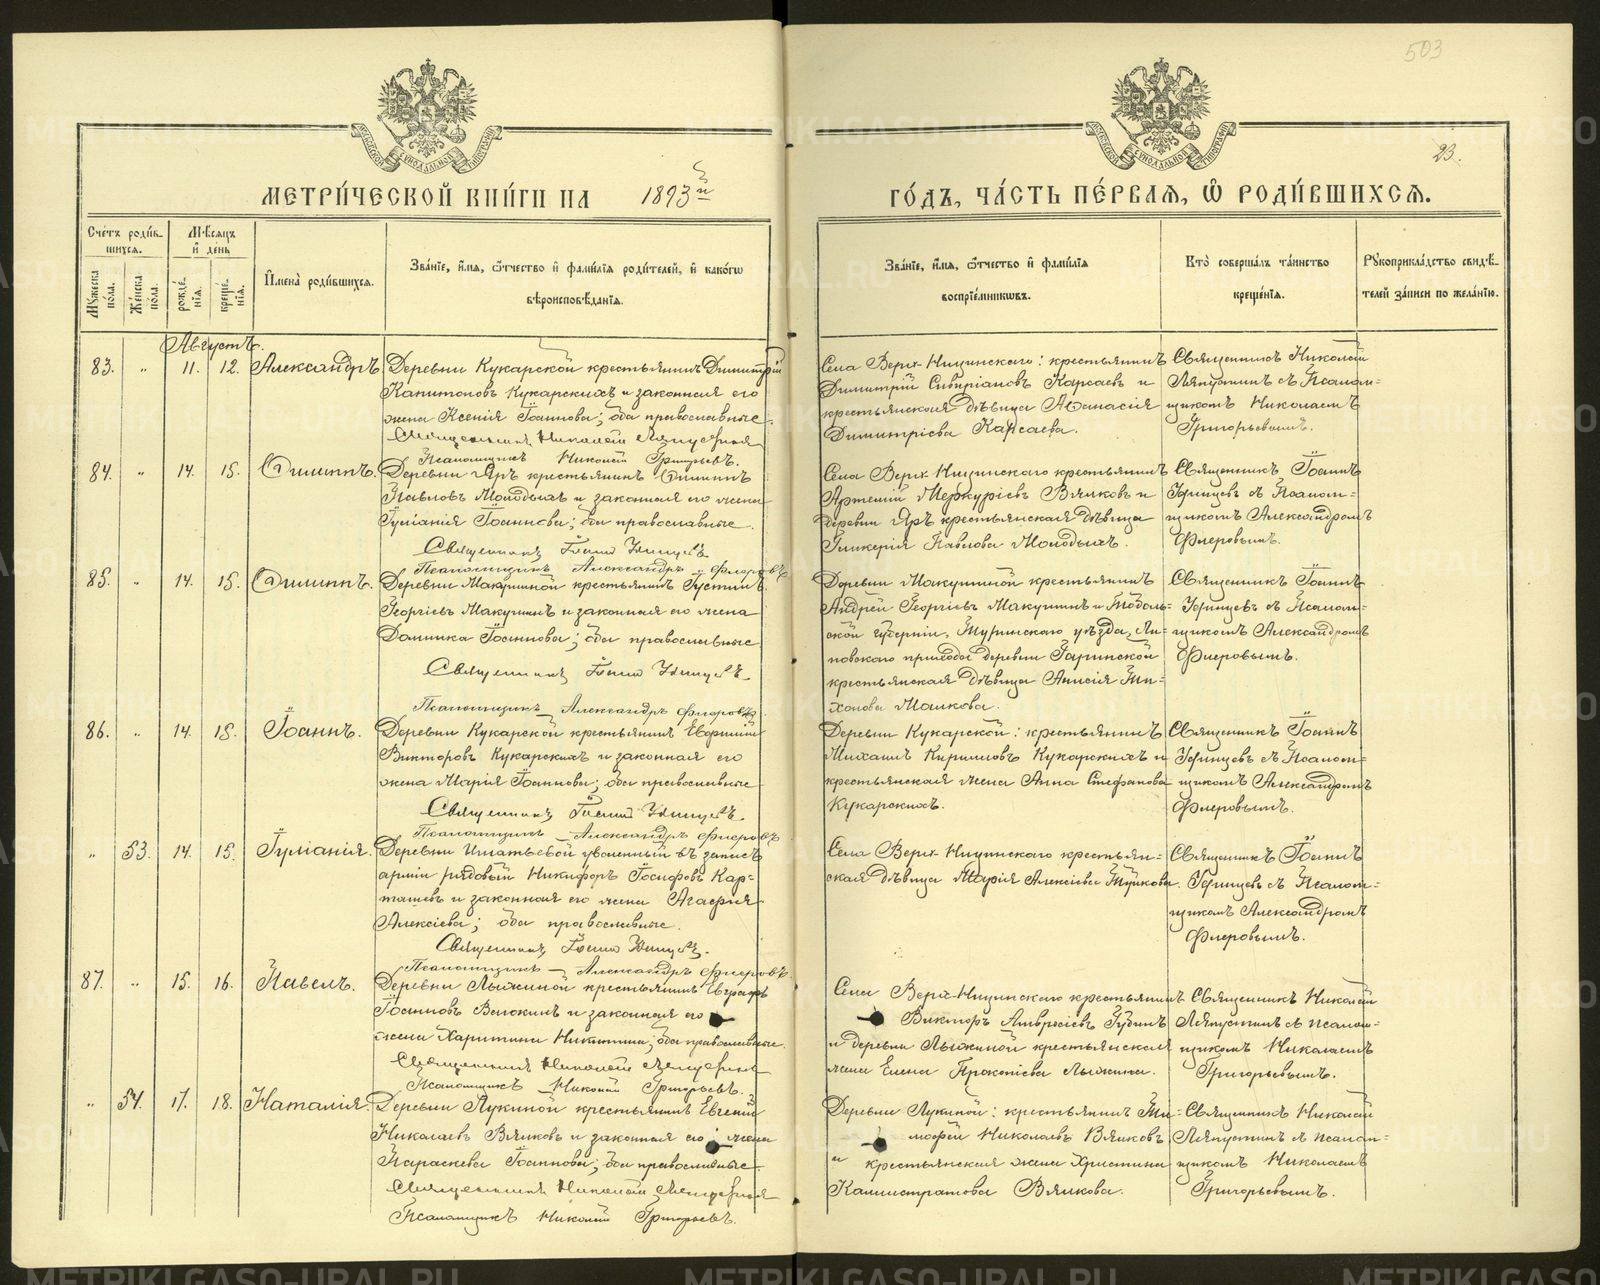 503
23.
МЕТРИ́ЧЕСКОЙ КНИ́ГИ НА 1893 й
ГО́ДЪ, ЧА́СТЬ ПЕ́РВАЯ, Ѽ РОДИ́ВШИХСЯ.
Сче́тъ роди́в-
шихся.
Му́жеска по́ла.
Же́нска по́ла.
Мѣ́сяцъ и҆ де́нь
рожде́-
нїя.
креще́-
нїя.
И҆мена̀ роди́вшихся.
Зва́нїе, и҆́мя, ѻ҆́тчество и҆ фами́лїя роди́телей, и҆ како́гѡ
вѣроисповѣ́данїя.
Зва́нїе, и҆́мя, ѻ҆́тчество и҆ фами́лїя
воспрїе́мниковъ.
Кто̀ соверша́лъ та́инство
креще́нїя.
Рꙋкоприкла́дство свидѣ́-
телей за́писи по жела́нїю.
Августъ.
83. „ 11. 12. Александръ
Деревни Кукарской крестьянинъ Димитрій
Капитоновъ Кукарскихъ и законная его
жена Ксенія Іоаннова; оба православные.
Священникъ Николай Ляпустинъ
Псаломщикъ Николай Григорьевъ.
Села Верх-Ницинскаго: крестьянинъ
Димитрій Сивиріановъ Карсаевъ и
крестьянская дѣвица Аѳанасія
Димитріева Карсаева.
Священникъ Николай
Ляпустинъ съ Псалом-
щикомъ Николаемъ
Григорьевымъ.
84. „ 14. 15. Филиппъ.
Деревни Яръ крестьянинъ Филиппъ
Павловъ Молодыхъ и законная его жена
Іуліанія Іоаннова; оба православные.
Священникъ Іоаннъ
Псаломщикъ Александръ Флеровъ
Села Верх-Ницинскаго крестьянинъ
Артемій Меркуріевъ Вялковъ и
деревни Яръ крестьянская дѣвица
Гликерія Павлова Молодыхъ.
Священникъ Іоаннъ
съ Псалом-
щикомъ Александромъ
Флеровымъ.
85. „ 14. 15. Филиппъ.
Деревни Макушиной крестьянинъ Іустинъ
Георгіевъ Макушинъ и законная его жена
Домника Іоаннова; оба православные
Священникъ Іоаннъ
Псаломщикъ Александръ Флеровъ
Деревни Макушиной крестьянинъ
Андрей Георгіевъ Макушинъ и Тоболь-
ской губерніи, Туринскаго уѣзда, Ли-
повскаго прихода деревни Гаринской
крестьянская дѣвица Анисія Ти-
хонова Машкова.
Священникъ Іоаннъ
съ Псалом-
щикомъ Александромъ
Флеровымъ.
86. „ 14. 15. Іоаннъ.
Деревни Кукарской крестьянинъ Евфимій
Викторовъ Кукарскихъ и законная его
жена Марія Іоаннова; оба православные
Священникъ Іоаннъ
Псаломщикъ Александръ Флеровъ
Деревни Кукарской: крестьянинъ
Михаилъ Кирилловъ Кукарскихъ и
крестьянская жена Анна Стефанова
Кукарскихъ.
Священникъ Іоаннъ
съ Псалом-
щикомъ Александромъ
Флеровымъ.
„ 53. 14. 15. Іуліанія.
Деревни Игнатьевой уволенный въ запасъ
арміи рядовый Никифоръ Іосифовъ Кар-
ташевъ и законная его жена Агафія
Алексіева; оба православные.
Священникъ Іоаннъ
Псаломщикъ Александръ Флеровъ
Села Верх-Ницинскаго крестьян-
ская дѣвица Марія Алексіева
Священникъ Іоаннъ
съ Псалом-
щикомъ Александромъ
Флеровымъ.
87. „ 15. 16. Павелъ.
Деревни Лыжиной крестьянинъ Евграфъ
Іоанновъ и законная его
жена Харитина Никитина; оба православные.
Священникъ Николай Ляпустинъ
Псаломщикъ Николай Григорьевъ.
Села Верх-Ницинскаго крестьянинъ
Викторъ Амвросіевъ Губинъ
и деревни Лыжиной крестьянская
жена Елена Прокопіева Лыжина.
Священникъ Николай
Ляпустинъ съ псалом-
щикомъ Николаемъ
Григорьевымъ.
„ 54. 17. 18. Наталія.
Деревни Лукиной крестьянинъ Евгеній
Николаевъ Вялковъ и законная его жена
Параскева Іоаннова; оба православные.
Священникъ Николай Ляпустинъ
Псаломщикъ Николай Григорьевъ.
Деревни Лукиной: крестьянинъ Ти-
мофей Николаевъ Вялковъ
и крестьянская жена Христина
Каллистратова Вялкова.
Священникъ Николай
Ляпустинъ съ псалом-
щикомъ Николаемъ
Григорьевымъ.
METRIKI.GASO-URAL.RU